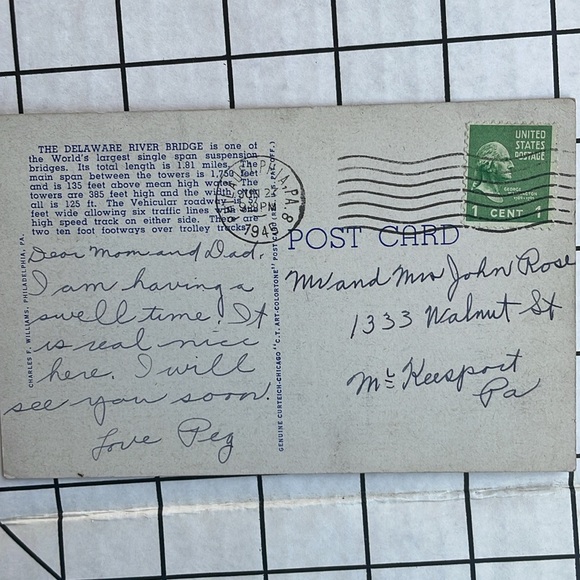 THE DELAWARE RIVER BRIDGE is one of
the World's largest single span suspension
bridges. Its total length is 1.81 miles. The
main span between the towers is 1,750 feet
and is 135 feet above mean high water. The
towers are 385 feet high and the width
all is 125 ft. The Vehicular roadway is 57
feet wide allowing six traffic lines and
high speed track on either side. There are
two ten foot footways over trolley tracks.
CHARLES F. WILLIAMS, PHILADELPHIA, PA.
Dear Mom and Dad,
I am having a
swell time! It
is real nice
here. I will
see you soon.
Love Peg
GENUINE CURTEICH-CHICAGO "C.T. ART-COLORTONE" POST CARD (REG. U.S. PAT. OFF.)
PHILADELPHIA, PA. 8
PM
194
UNITED
STATES
POSTAGE
GEORGE
WASHINGTON
1 CENT 1
POST CARD
Mr and Mrs John Rose
1333 Walnut St
Mc Keesport
Pa